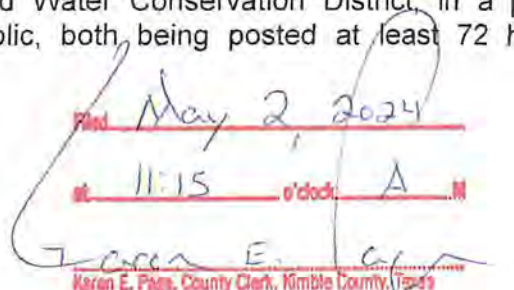 d Water Conservation District, in a p
olic, both being posted at least 72 h
Filed May 2, 2024
at 11:15 o'clock A M
Karen E. Page
Karen E. Page, County Clerk, Kimble County, Texas